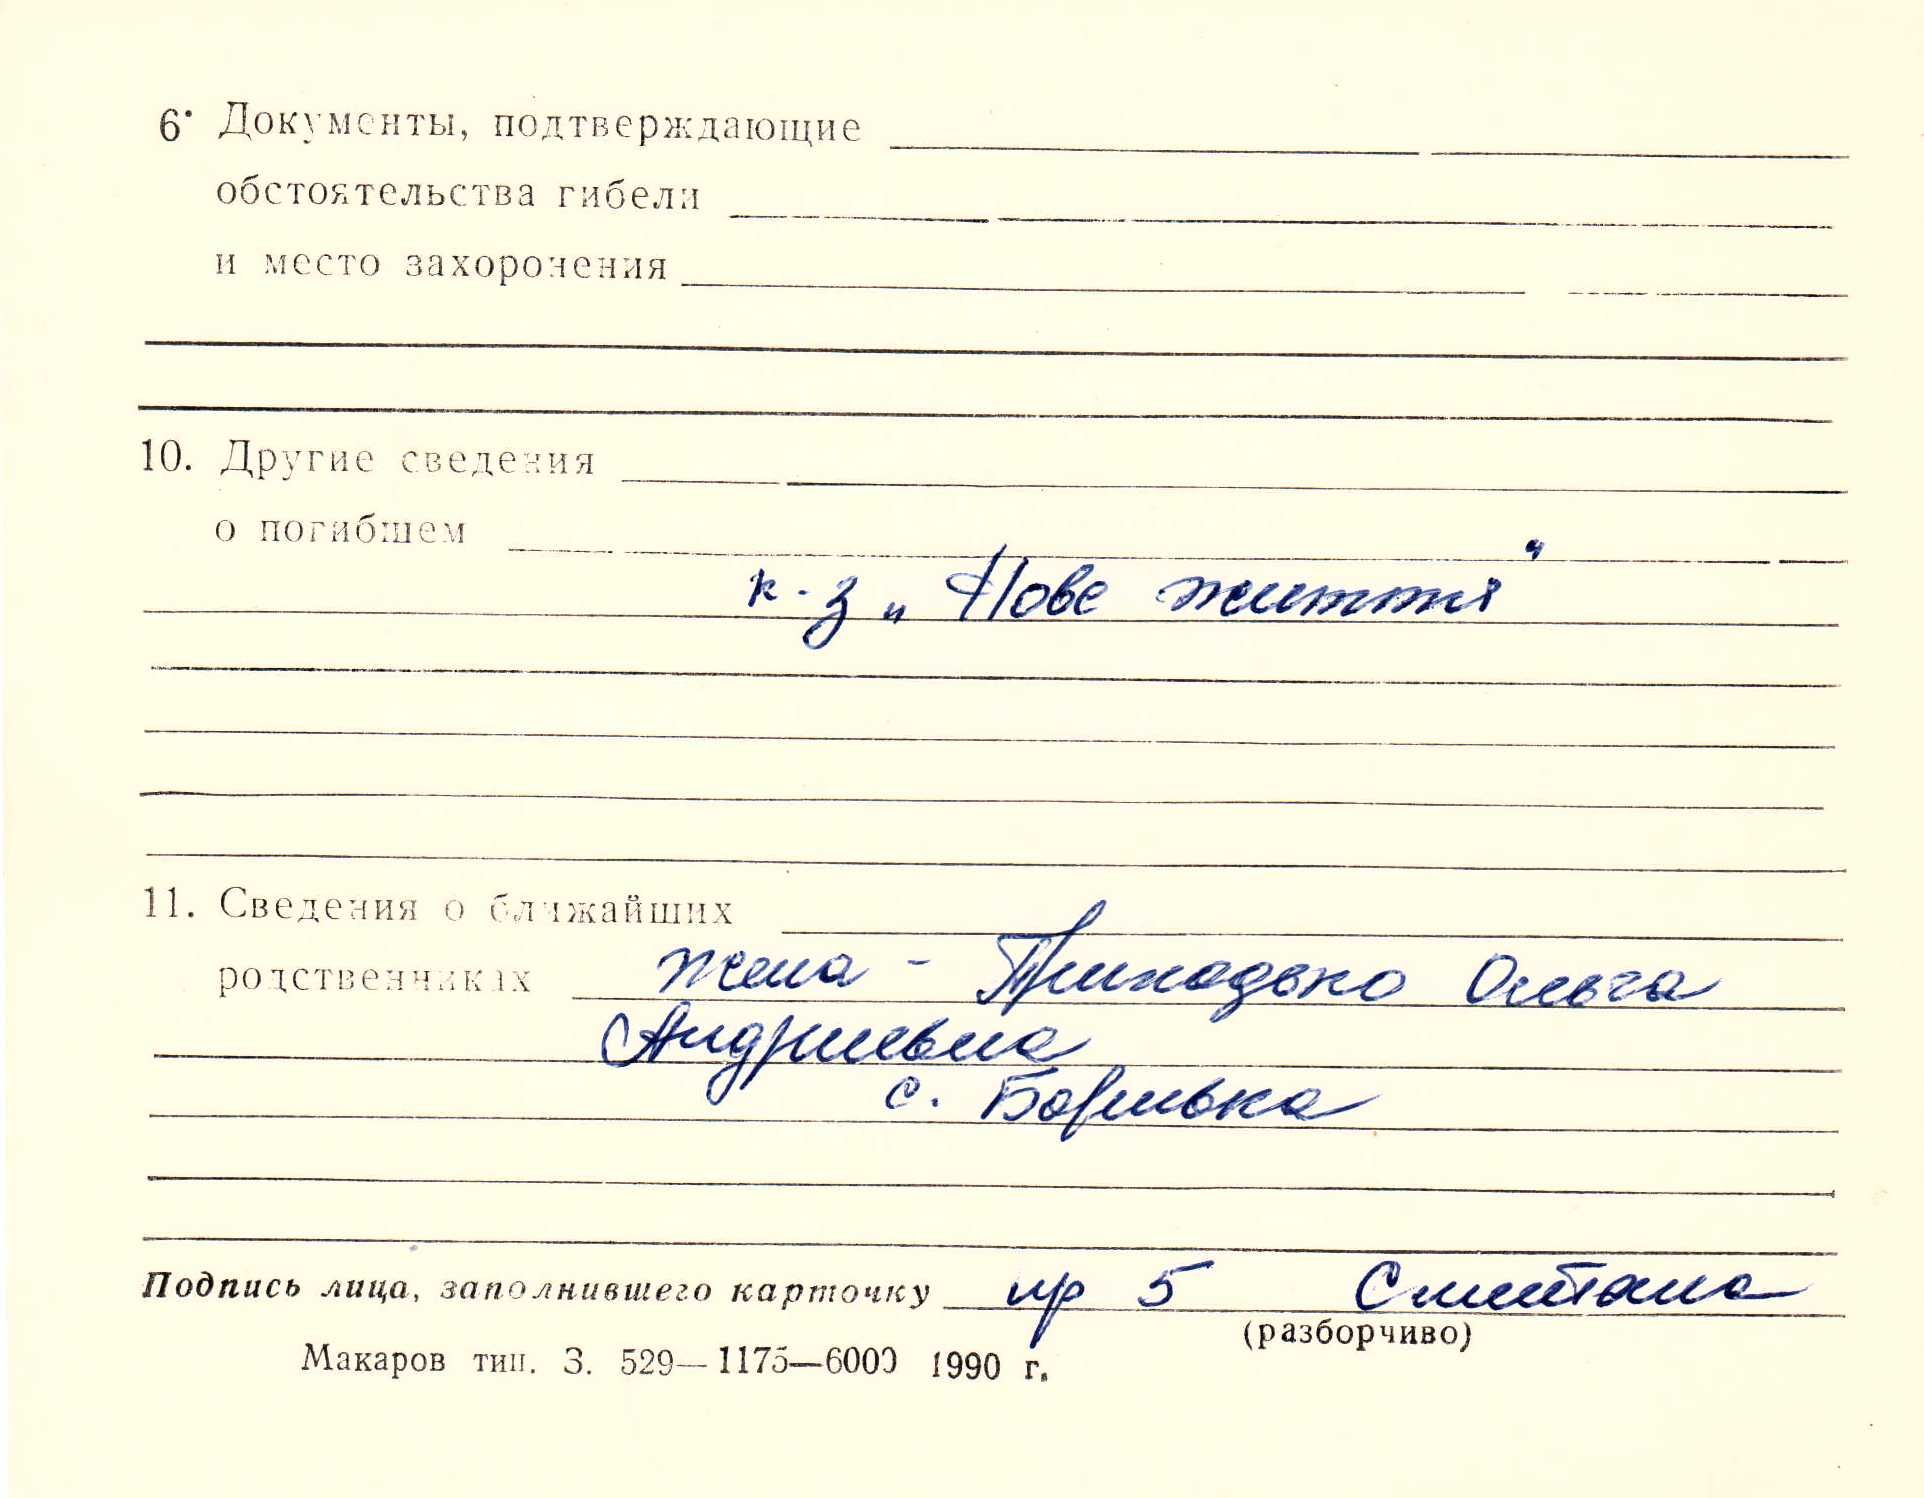 6. Документы, подтверждающие
обстоятельства гибели
и место захоронения
10. Другие сведения
о погибшем
к-з „Нове життя“
11. Сведения о ближайших
родственниках жена - Приходько Ольга
Андриевна
с. Боривка
Подпись лица, заполнившего карточку пр 5 Сметана
(разборчиво)
Макаров тип. З. 529—1175—6000 1990 г.